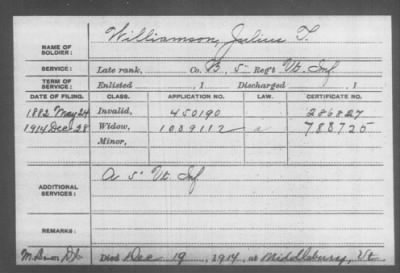 Williamson, Julius T.
NAME OF SOLDIER:
SERVICE: Late rank, Co. B, 5 Reg't Vt. Inf
TERM OF SERVICE: Enlisted , 1 Discharged , 1
DATE OF FILING. CLASS. APPLICATION NO. LAW. CERTIFICATE NO.
1882 May 24 Invalid, 450190 286827
1914 Dec 28 Widow, 1039112 788725
Minor,
ADDITIONAL SERVICES: A 5 Vt. Inf
REMARKS:
Died Dec 19, 1914, at Middlebury, Vt